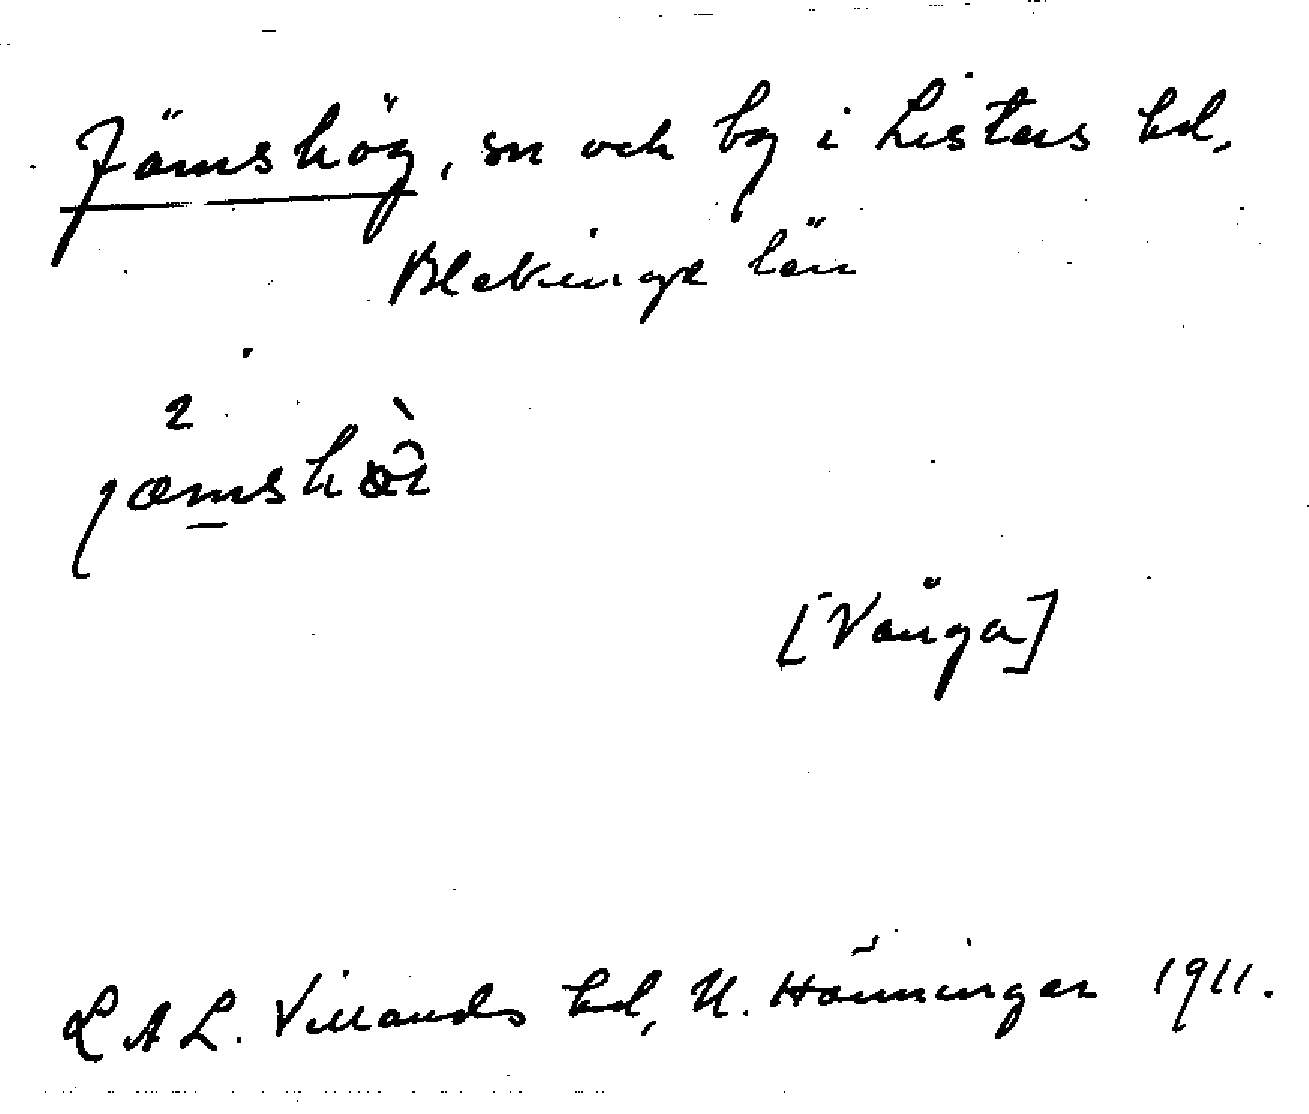 Jämshög, sn och by i Listers hd,
Blekinge län
2
[Vånga]
LAL. Villands hd, N. Hänninger 1911.